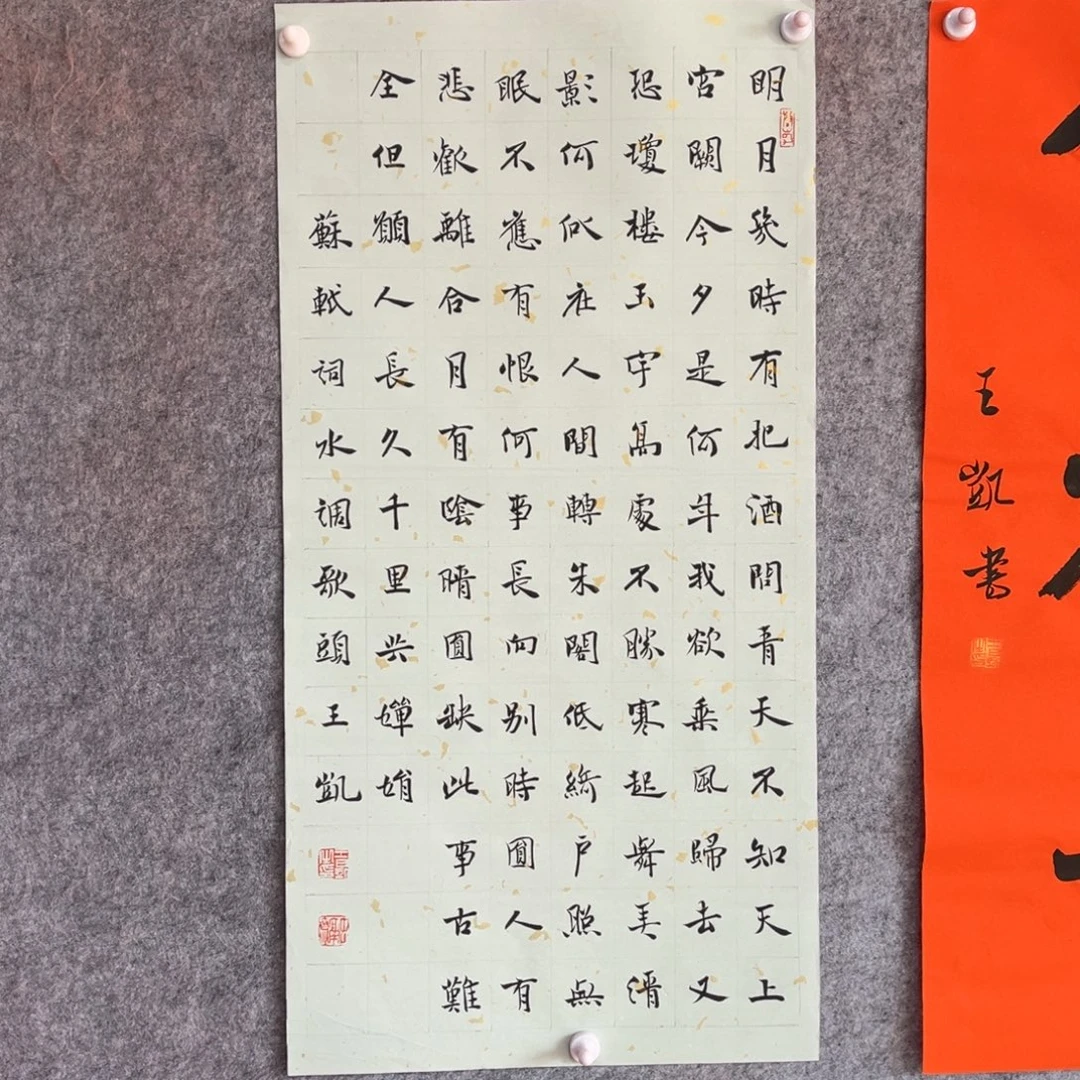 明月幾時有把酒問青天不知天上
宫闕今夕是何年我欲乘風歸去又
恐瓊樓玉宇高處不勝寒起舞弄清
影何似在人間轉朱閣低綺户照無
眠不應有恨何事長向别時圓人有
悲歡離合月有陰晴圓缺此事古難
全但願人長久千里共嬋娟
蘇軾詞水調歌頭王凱
王凱書